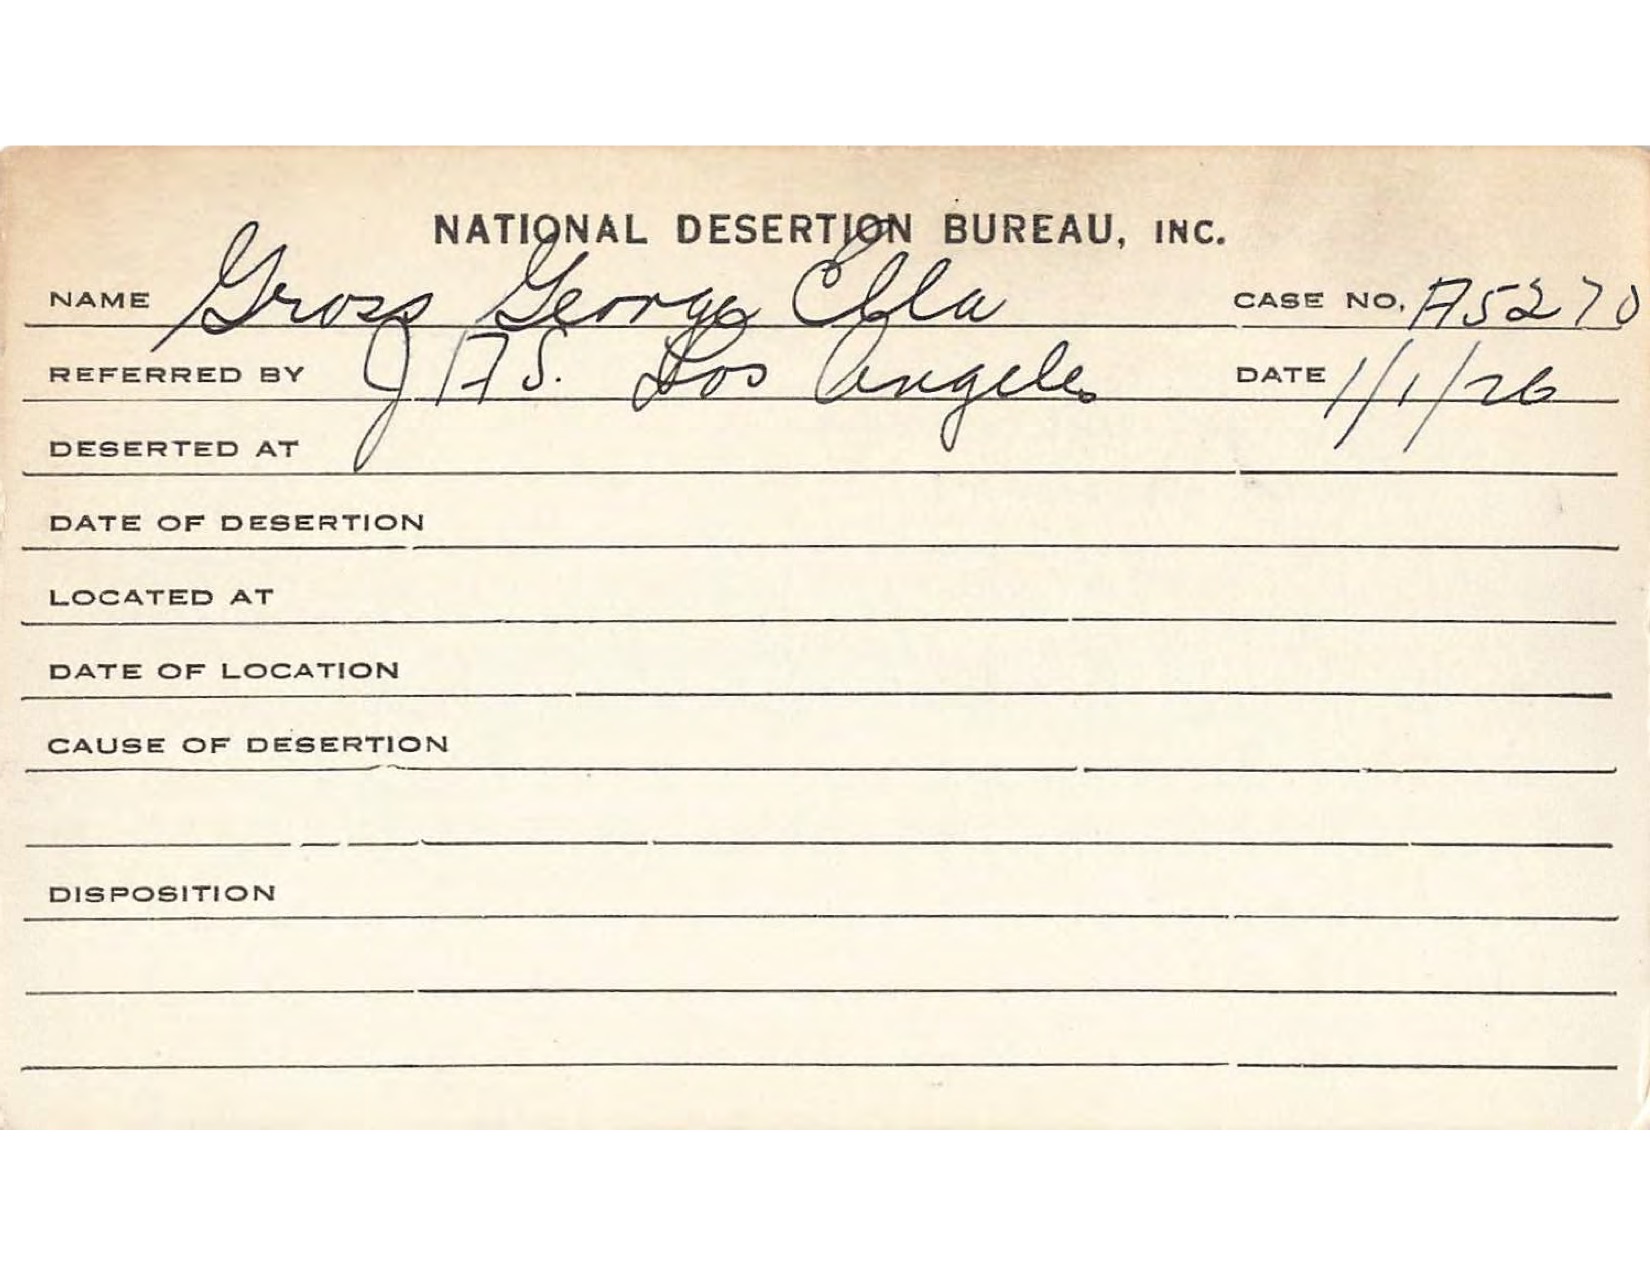 NATIONAL DESERTION BUREAU, INC.
NAME Gross George Ella CASE NO. A5270
REFERRED BY J A S. Los Angeles DATE 1/1/26
DESERTED AT
DATE OF DESERTION
LOCATED AT
DATE OF LOCATION
CAUSE OF DESERTION
DISPOSITION